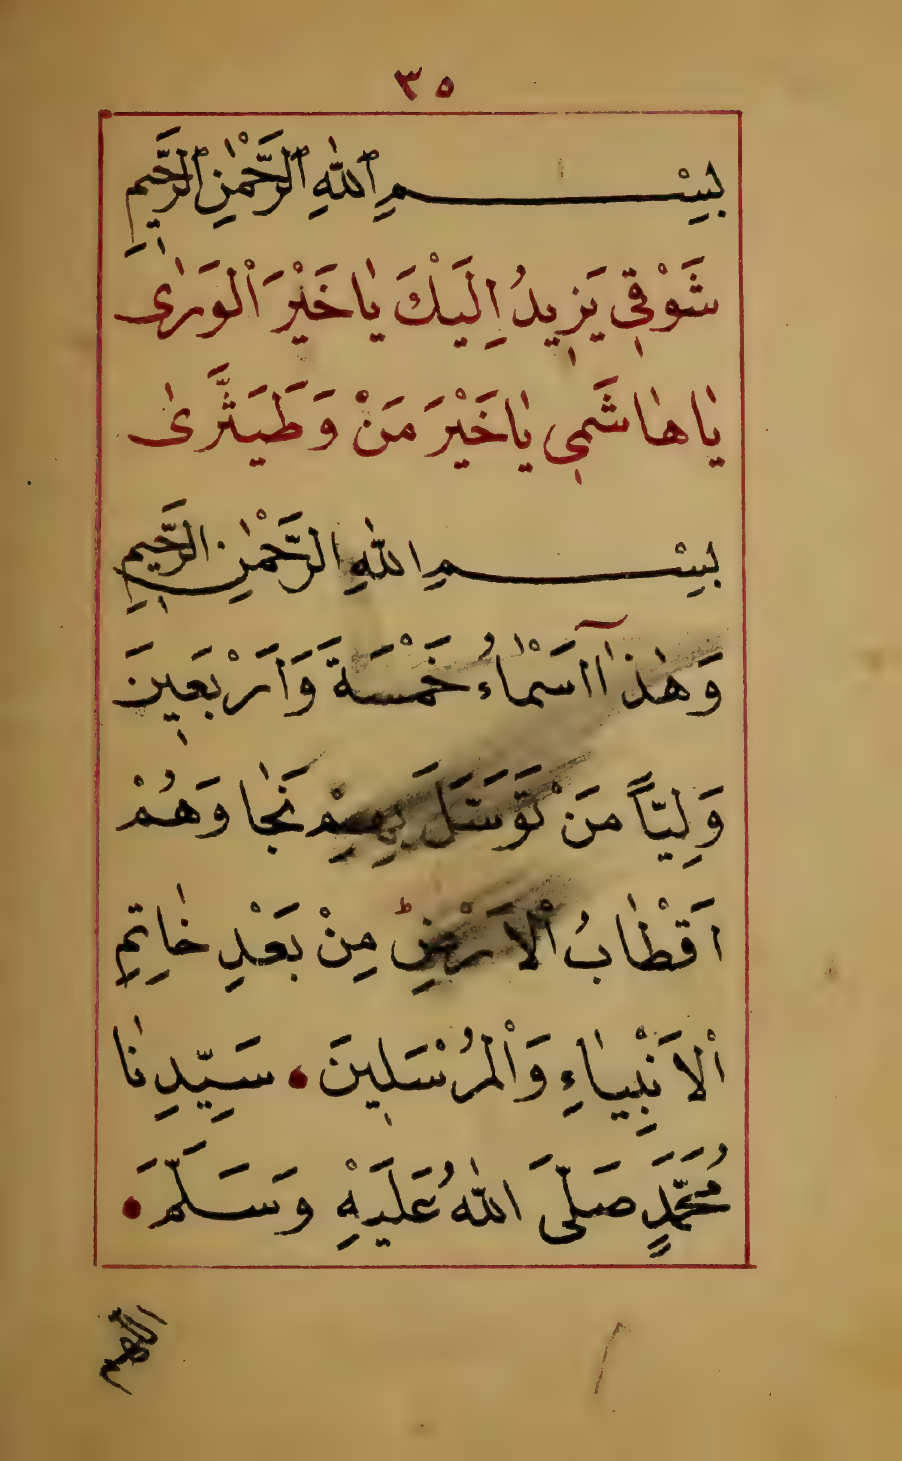 ٣٥
بِسْمِ ٱللّٰهِ ٱلرَّحْمٰنِ ٱلرَّحِيمِ
شَوْقِي يَزِيدُ اِلَيْكَ يٰاخَيْرَ الْوَرٰى
يٰاهٰاشَمِي يٰاخَيْرَ مَنْ وَطَيَثَّرىٰ
بِسْمِ اللّٰهِ الرَّحْمٰنِ الرَّحِيمِ
وَهٰذٰآ اَسْمٰاءُ خَمْسَةَ وَاَرْبَعِينَ
وَلِيّاً مَنْ تَوَسَّلَ بِهِمْ نَجٰا وَهُمْ
اَقْطٰابُ الْاَرْضِ مِنْ بَعْدِ خٰاتِمِ
الْاَنْبِيٰاءِ وَالْمُرْسَلِينَ • سَيِّدِنٰا
مُحَمَّدٍ صَلَّى اللّٰهُ عَلَيْهِ وَسَلَّمَ •
اللهم